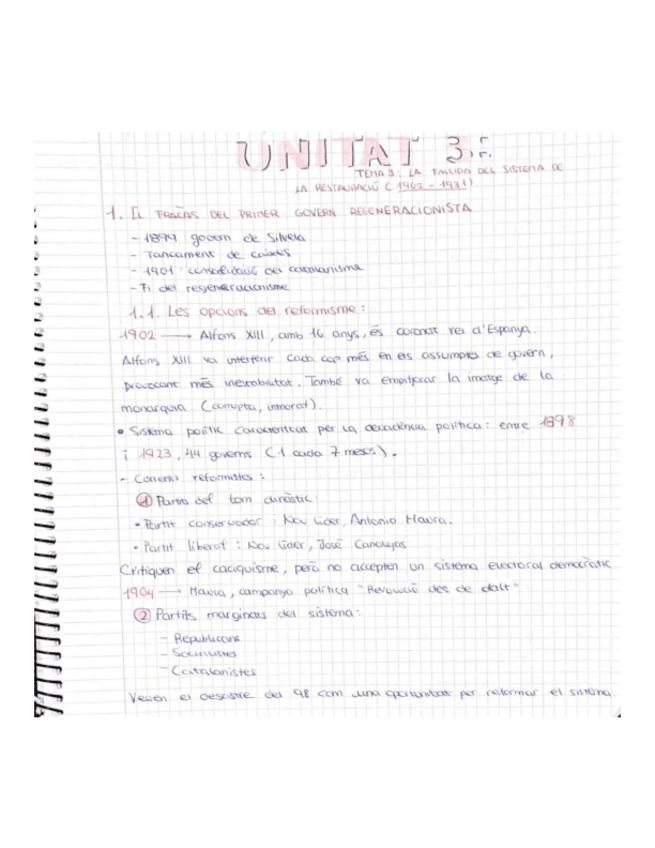 UNITAT 3:
TEMA 3: LA FALLIDA DEL SISTEMA DE
LA RESTAURACIÓ (1902 - 1931)
1. EL FRACÀS DEL PRIMER GOVERN REGENERACIONISTA
- 1899 govern de Silvela
- Tancament de caixes
- 1901 consolidació del catalanisme
- Fi del regeneracionisme
1.1. Les opcions del reformisme:
1902 → Alfons XIII, amb 16 anys, és coronat rei d'Espanya.
Alfons XIII va interferir cada cop més en els assumptes de govern,
provocant més inestabilitat. També va empitjorar la imatge de la
monarquia (corrupta, immoral).
• Sistema polític caracteritzat per la decadència política: entre 1898
i 1923, 44 governs (1 cada 7 mesos).
- Corrents reformistes:
1 Partits del torn dinàstic:
• Partit conservador: Nou líder, Antonio Maura.
• Partit liberal: Nou líder, José Canalejas
Critiquen el caciquisme, però no accepten un sistema electoral democràtic
1904 → Maura, campanya política "Revolució des de dalt"
2 Partits marginats del sistema:
- Republicans
- Socialistes
- Catalanistes
Veuen el desastre del 98 com una oportunitat per reformar el sistema.